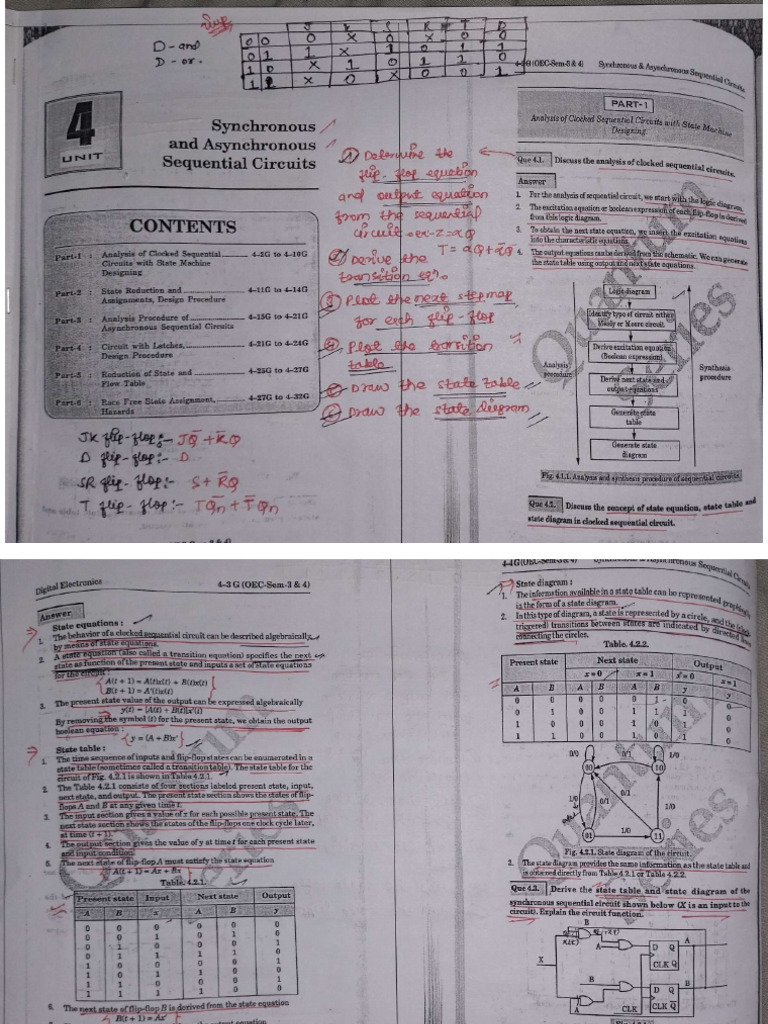 Imp
J K S R T D
0 0 0 X 0 X 0 0
0 1 1 X 1 0 1 1
1 0 X 1 0 1 1 0
1 1 X 0 X 0 0 1
D - and
D - or.
4
UNIT
Synchronous
and Asynchronous
Sequential Circuits
CONTENTS
Part-1 : Analysis of Clocked Sequential ........ 4-2G to 4-10G
Circuits with State Machine
Designing
Part-2 : State Reduction and ........ 4-11G to 4-14G
Assignments, Design Procedure
Part-3 : Analysis Procedure of ........ 4-15G to 4-21G
Asynchronous Sequential Circuits
Part-4 : Circuit with Latches, ........ 4-21G to 4-24G
Design Procedure
Part-5 : Reduction of State and ........ 4-25G to 4-27G
Flow Table
Part-6 : Race Free State Assignment, ........ 4-27G to 4-32G
Hazards
JK flip-flop:- JQ̄ + K̄Q
D flip-flop:- D
SR flip-flop:- S + R̄Q
T flip-flop:- TQ̄n + T̄Qn
① Determine the
flip-flop equation
and output equation
from the sequential
circuit
② Derive the
transition eqn.
③ Plot the next step map
for each flip-flop
④ Plot the transition
table
⑤ Draw the state table
⑥ Draw the state diagram
4-2G (OEC-Sem-3 & 4) Synchronous & Asynchronous Sequential Circuits
PART-1
Analysis of Clocked Sequential Circuits with State Machine
Designing.
Que 4.1. Discuss the analysis of clocked sequential circuits.
Answer
1. For the analysis of sequential circuit, we start with the logic diagram.
2. The excitation equation or boolean expression of each flip-flop is derived
from this logic diagram.
3. To obtain the next state equation, we insert the excitation equations
into the characteristic equations.
4. The output equations can be derived from the schematic. We can generate
the state table using output and next state equations.
Logic diagram
Identify type of circuit either
Mealy or Moore circuit
Derive excitation equation
(Boolean expression)
Derive next state and
output equations
Generate state
table
Generate state
diagram
Analysis
procedure
Synthesis
procedure
Fig. 4.1.1. Analysis and synthesis procedure of sequential circuits
Que 4.2. Discuss the concept of state equation, state table and
state diagram in clocked sequential circuit.
Quantum
Series
Digital Electronics 4-3 G (OEC-Sem-3 & 4)
Answer
State equations :
1. The behavior of a clocked sequential circuit can be described algebraically
by means of state equations.
2. A state equation (also called a transition equation) specifies the next
state as function of the present state and inputs a set of state equations
for the circuit :
A(t + 1) = A(t)x(t) + B(t)x(t)
B(t + 1) = A'(t)x(t)
3. The present state value of the output can be expressed algebraically
y(t) = [A(t) + B(t)]x'(t)
By removing the symbol (t) for the present state, we obtain the output
boolean equation :
y = (A + B)x'
State table :
1. The time sequence of inputs and flip-flop states can be enumerated in a
state table (sometimes called a transition table). The state table for the
circuit of Fig. 4.2.1 is shown in Table 4.2.1.
2. The Table 4.2.1 consists of four sections labeled present state, input,
next state, and output. The present state section shows the states of flip-
flops A and B at any given time t.
3. The input section gives a value of x for each possible present state. The
next state section shows the states of the flip-flops one clock cycle later,
at time (t + 1).
4. The output section gives the value of y at time t for each present state
and input condition.
5. The next state of flip-flop A must satisfy the state equation
A(t + 1) = Ax + Bx
Table. 4.2.1.
Present state Input Next state Output
A B x A B y
0 0 0 0 0 0
0 0 1 0 1 0
0 1 0 0 0 1
0 1 1 1 1 0
1 0 0 0 0 1
1 0 1 1 0 0
1 1 0 0 0 1
1 1 1 1 0 0
6. The next state of flip-flop B is derived from the state equation
B(t + 1) = A'x
4-4 G (OEC-Sem-3 & 4)
State diagram :
1. The information available in a state table can be represented graphically
in the form of a state diagram.
2. In this type of diagram, a state is represented by a circle, and the (clock
triggered) transitions between states are indicated by directed lines
connecting the circles.
Table. 4.2.2.
Present state Next state Output
x = 0 x = 1 x = 0 x = 1
A B A B A B y y
0 0 0 0 0 1 0 0
0 1 0 0 1 1 1 0
1 0 0 0 1 0 1 0
1 1 0 0 1 0 1 0
0/0 1/0
00 10
0/1
1/0 0/1 1/0
01 1/0 11
Fig. 4.2.1. State diagram of the circuit.
3. The state diagram provides the same information as the state table and
is obtained directly from Table 4.2.1 or Table 4.2.2.
Que 4.3. Derive the state table and state diagram of the
synchronous sequential circuit shown below (X is an input to the
circuit). Explain the circuit function.
B
X
A
D Q A
CLK Q
B
D Q B
A CLK CLK Q
Quantum
Series